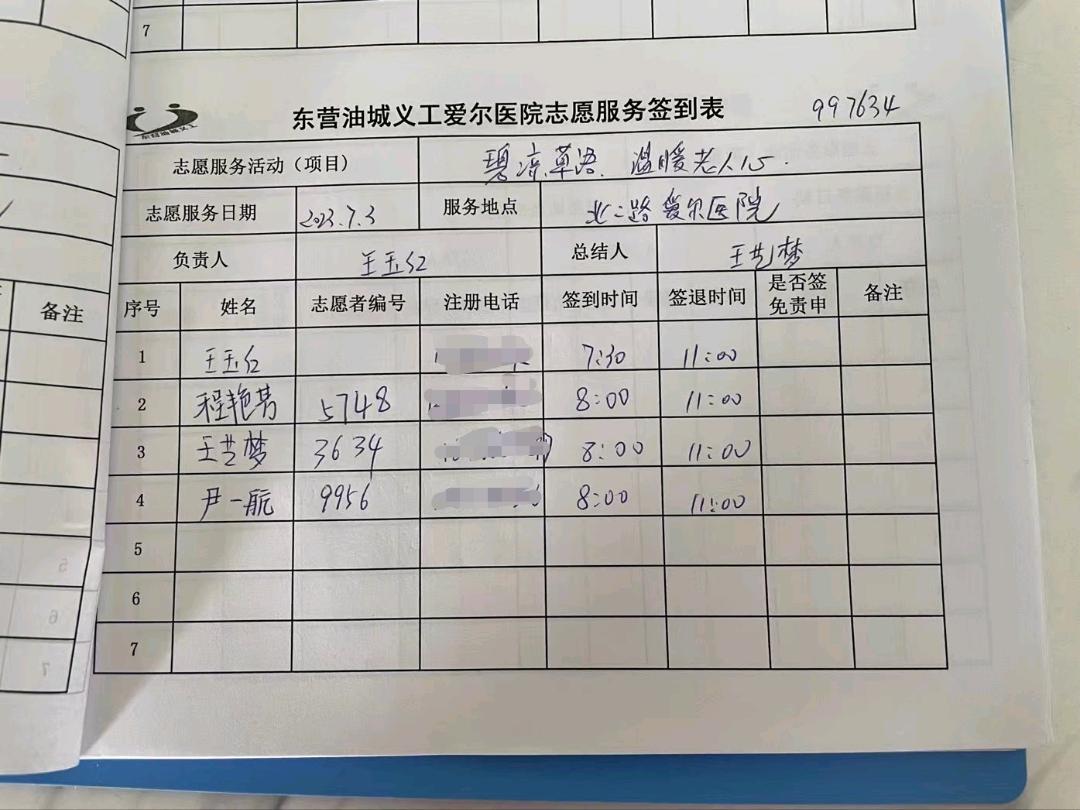 7
东营油城义工
东营油城义工爱尔医院志愿服务签到表 997634
志愿服务活动（项目） 碧凉草语、温暖老人心.
志愿服务日期 2023.7.3 服务地点 北二路爱尔医院
负责人 王玉红 总结人 王艺梦
备注 序号 姓名 志愿者编号 注册电话 签到时间 签退时间 是否签免责申 备注
1 王玉红 7:30 11:00
2 程艳 5748 8:00 11:00
3 王艺梦 3634 8:00 11:00
4 尹一航 9956 8:00 11:00
5
6
7